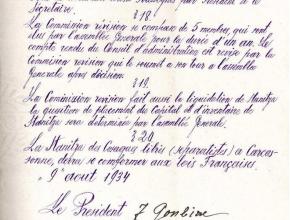 Secretaire.
§18.
La Commission revision se compose de 5 membres, qui sont
élus par l'assemblée Generale pour la durée d'un an. Le
compte rendu du Conseil d'administration est revisé par la
Commission revision qui le soumet a son tour a l'assemblée
Generale pour décision.
§19.
La Commission revision fait aussi la liquidation de
la question de placement de Capital d'
sera determinée par l'assemblée Generale.
§20
La des Cosaques libres (separatistes) a Carcas-
sonne, devra se conformer aux lois Françaises.
9 aout 1934
Le President